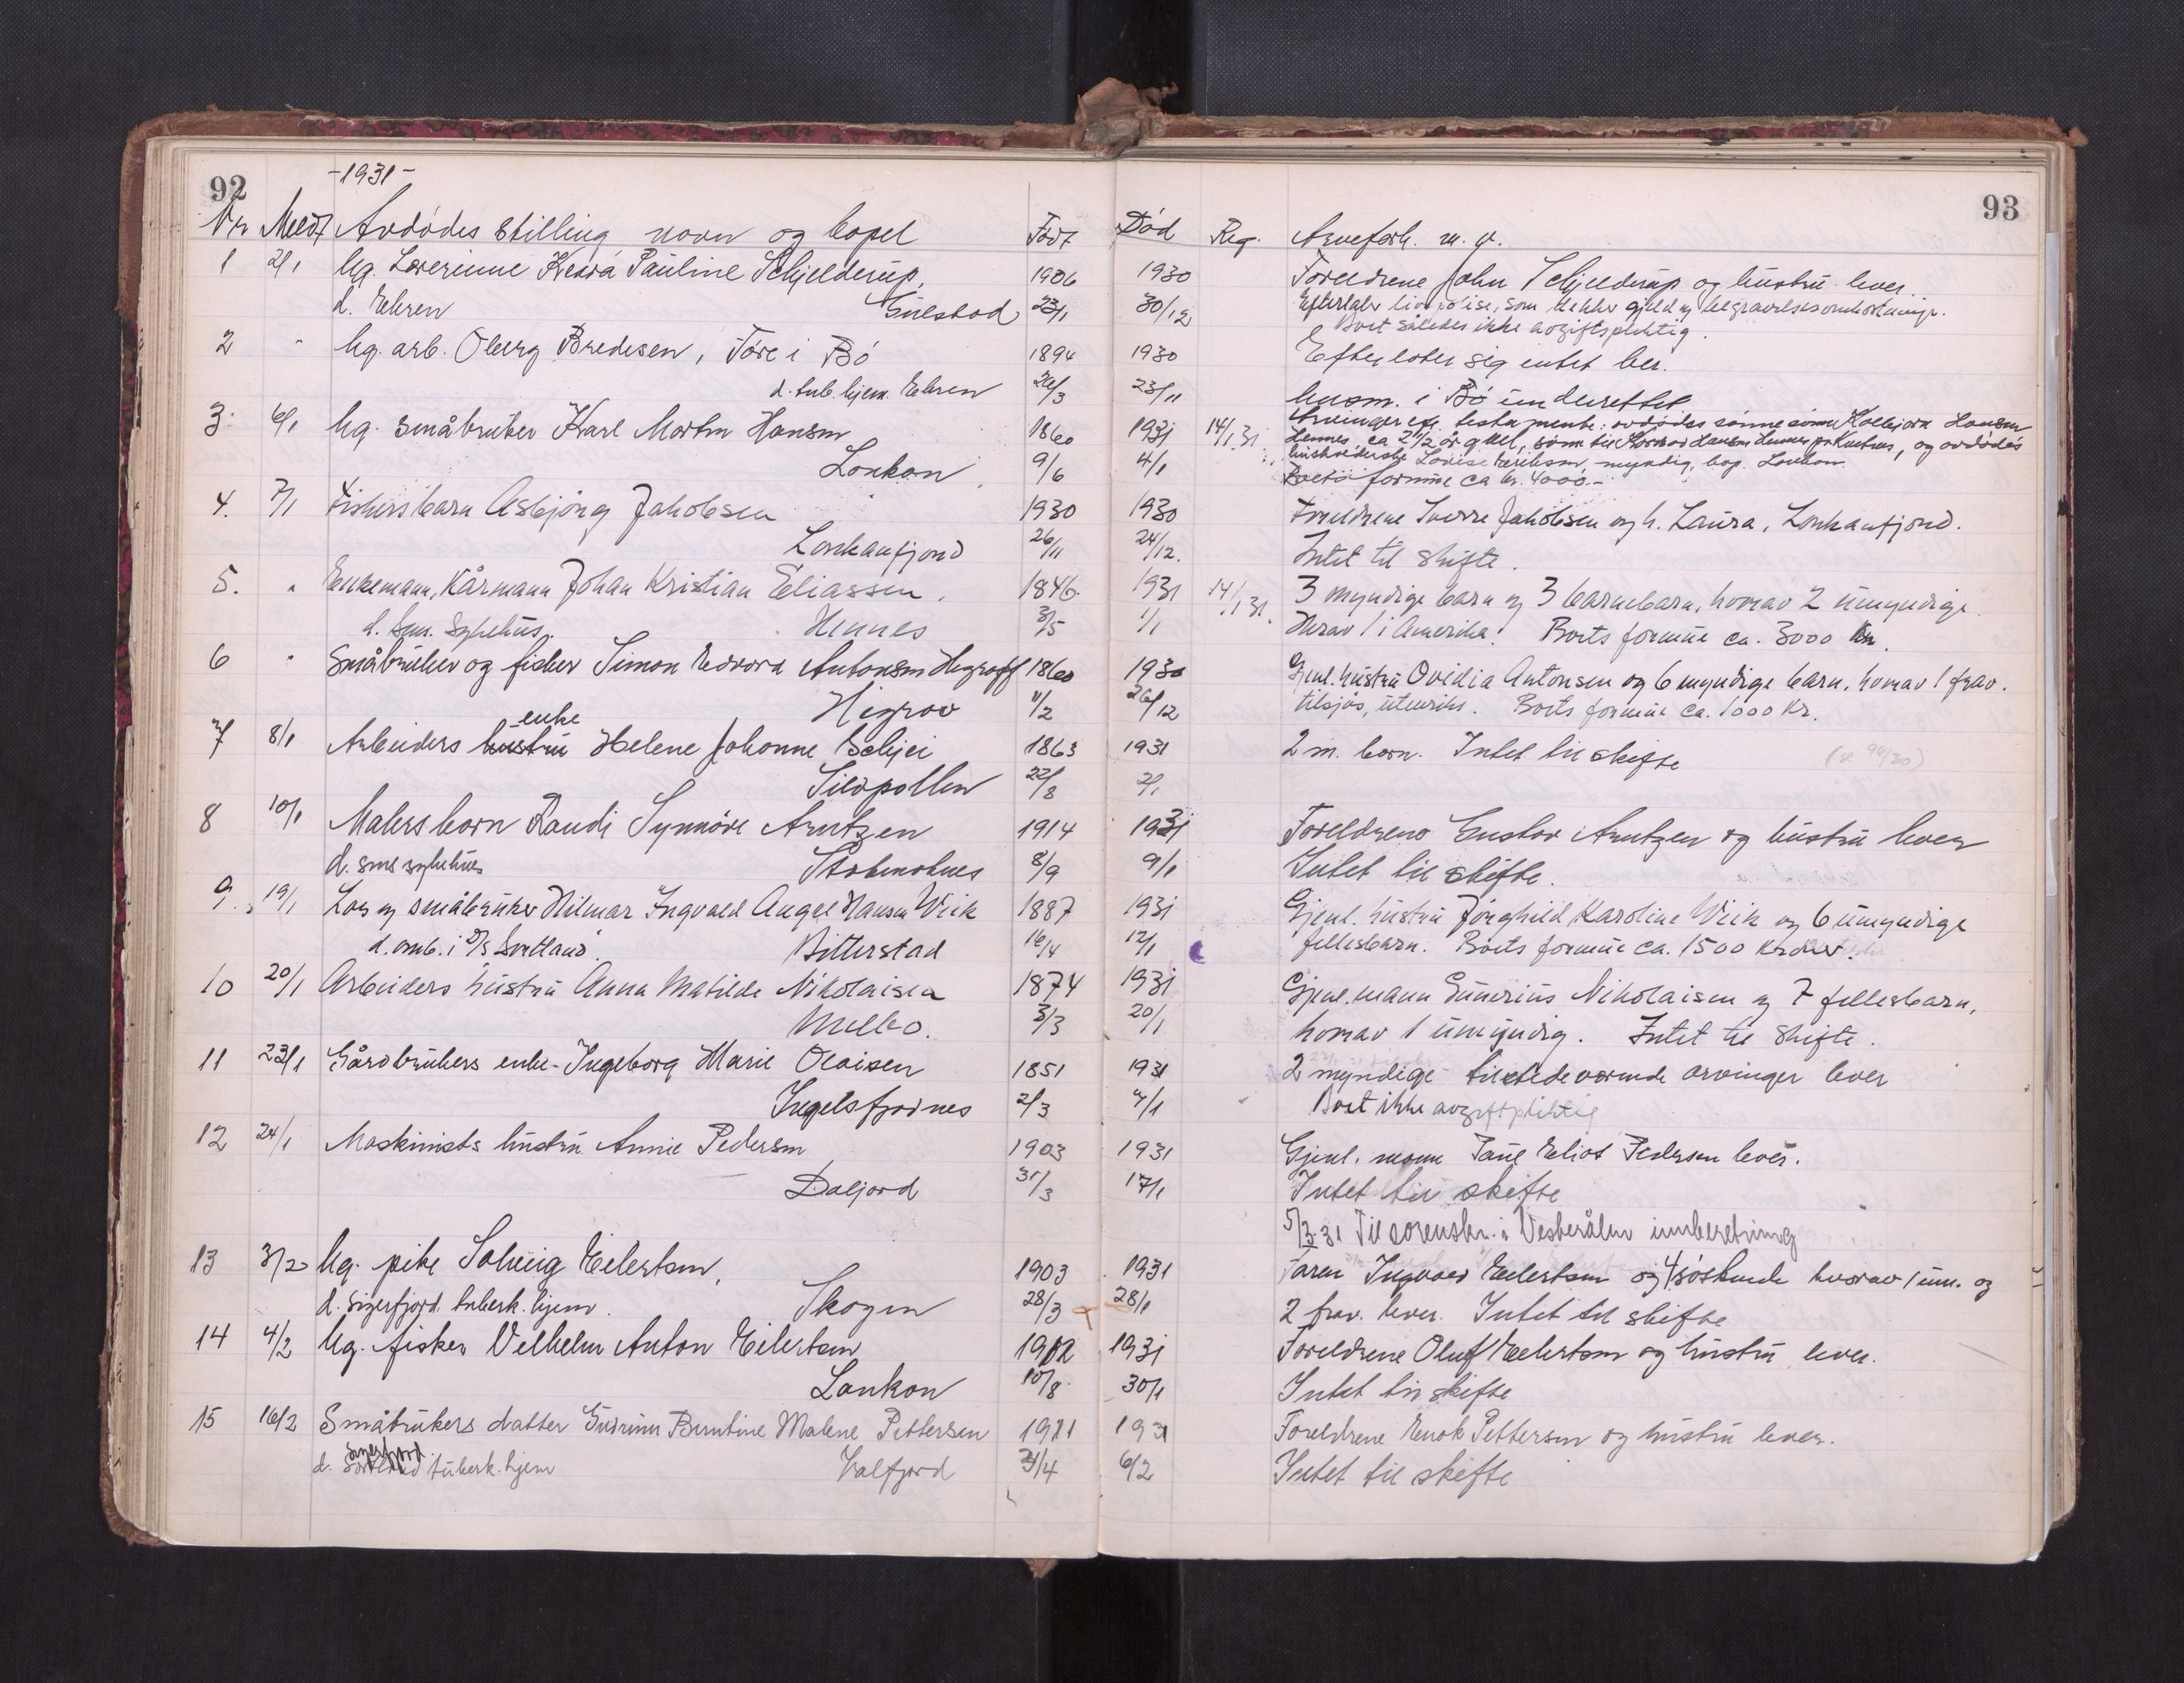 92
-1931-
Nr Meldt Avdødes stilling navn og bopel Født
1 2/1 Ug. Pauline Schjelderup, 1906
d. Ekren Guldstad 23/1
2 " Ug. arb. Oberg Bredesen, Føre i Bø 1894
d. tub. hjem. Ekren 26/3
3 6/1 Ug. småbruker Karl Martin Hansen 1860
Lonkan 9/6
4. 7/1 Fiskersbarn Asbjørg Jakobsen 1930
Lonkanfjord 26/11
5. " Enkemann, Kårmann Johan Kristian Eliassen. 1846
d. Sykehus. Hennes 3/5
6 " Småbruker og fisker Simon Edvard Antonsen 1860
Higrav 11/2
7 8/1 Arbeiders hustru enke Helene Johanne Schjei 1863
Sildpollen 22/8
8 10/1 Malers barn Randi Synnøve Arntzen 1914
d. sykehus Stokmarknes 8/9
9. 19/1 Los og småbruker Hilmar Ingvald Angel Hansen Wiik 1887
d. omb. i D/S Svolland Bitterstad 16/4
10 20/1 Arbeiders hustru Anna Matilde Nikolaisen 1874
Melbo. 3/3
11 23/1 Gårdbrukers enke Ingeborg Marie Olaisen 1851
Ingelsfjordnes 2/3
12 24/1 Maskinists hustru Annie Pedersen 1903
Daljord 31/3
13 3/2 Ug. pike Solveig Eilertsen, 1903
d. Sigerfjord tuberk. hjem. Skogen 28/3
14 4/2 Ug. fisker Vilhelm Anton Eilertsen 1902
Lonkan 10/8
15 16/2 Småbrukers datter Gudrun Berntine Malene Pettersen 1911
d. Sigerfjord tuberk. hjem Valfjord 3/4
93
Død Reg. Arveforh. m. v.
1930 Foreldrene John Schjelderup og hustru lever.
30/12 Efterlater livspolise, som dekker gjeld og begravelsesomkostninger.
Boet således ikke avgiftspliktig.
1930 Efterlater sig intet her.
23/11 i Bø underrettet
1931 14/1 31 Arvinger eft. testamente: avdødes sønnesønn Kolbjørn Hansen
Hennes, ca 2 1/2 år gml, og avdødes
4/1 husholderske Lovise Eriksen, myndig, bop. Lonkan
Boets formue ca kr. 4000.-
1930 Foreldrene Sverre Jakobsen og h. Laura, Lonkanfjord.
24/12. Intet til skifte.
1931 14/1 31. 3 myndige barn og 3 barnebarn, hvorav 2 umyndige.
1/1 Herav 1 i Amerika. Boets formue ca. 3000 kr.
1930 Gjenl. hustru Ovidia Antonsen og 6 myndige barn, hvorav 1 frav.
26/12 tilsjøs, utenriks. Boets formue ca. 1000 Kr.
1931 2 m. barn. Intet til skifte (se 96/30)
2/1
1931 Foreldrene Gustav Arntzen og hustru lever
9/1 Intet til skifte.
1931 Gjenl. hustru Jørghild Karoline Wiik og 6 umyndige
12/1 fellesbarn. Boets formue ca. 1500 Kr.
1931 Gjenl. mann Gunerius Nikolaisen og 7 fellesbarn,
20/1 hvorav 1 umyndig. Intet til skifte.
1931 2 myndige tilstedeværende arvinger lever
4/1 Boet ikke avgiftpliktig
1931 Gjenl. mann Paul Eliot Pedersen lever.
17/1 Intet til skifte
5/3.31 Til sorenskr. i Vesterålen innberetning
1931 Faren Ingvald Eilertsen og 4 søskende hvorav 1 um. og
28/1 2 frav. lever. Intet til skifte
1931 Foreldrene Oluf Eilertsen og hustru lever.
30/1 Intet til skifte
1931 Foreldrene Enok Pettersen og hustru lever.
6/2 Intet til skifte